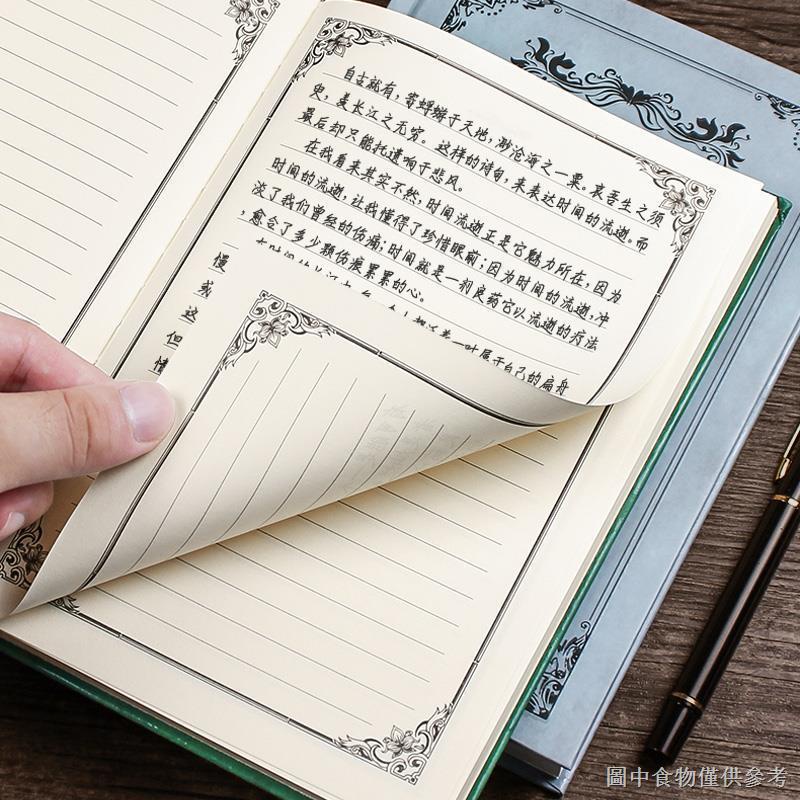 自古就有，寄蜉蝣于天地，渺沧海之一粟。哀吾生之须
臾，羡长江之无穷。这样的诗句，来表达时间的流逝。而
最后却只能托遗响于悲风。
在我看来其实不然，时间流逝正是它魅力所在，因为
时间的流逝，让我懂得了珍惜眼前；因为时间的流逝，冲
淡了我们曾经的伤痛；时间就是一剂良药它以流逝的疗法
，愈合了多少颗伤痕累累的心。
一叶属于自己的扁舟
慢
或
这
但
情
圖中食物僅供參考